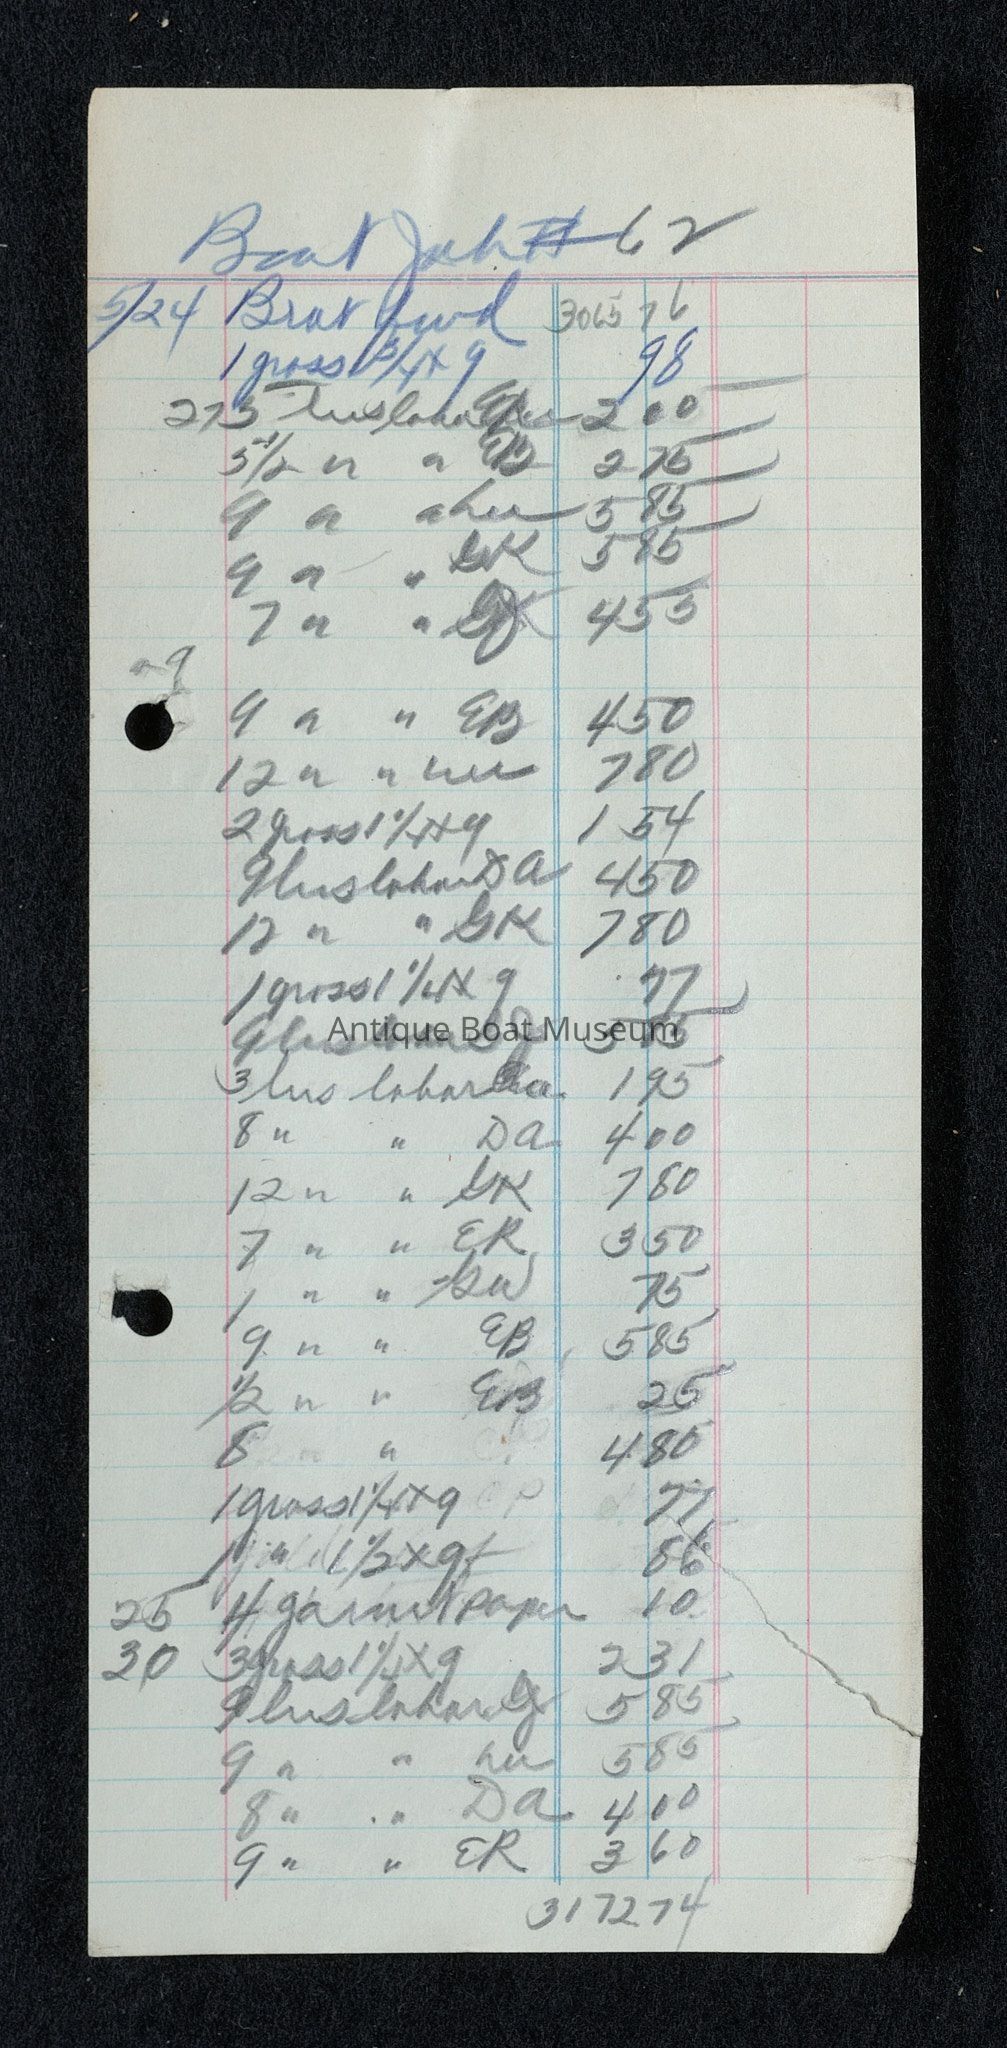 Boat Job # 62
5/24 Brot forwd 3065 76
1 gross 1 3/4 x 9 98
hrs labor 2 00
5 1/2 " " EB 2 75
9 " " 5 85
9 " " GK 5 85
7 " " 4 55
9
9 " " EB 4 50
12 " " 7 80
2 gross 1 1/4 x 9 1 54
9 hrs labor DA 4 50
12 " " GK 7 80
1 gross 1 1/4 x 9 77
Antique Boat Museum
9 hrs labor 5 85
3 hrs labor 1 95
8 " " DA 4 00
12 " " GK 7 80
7 " " ER 3 50
1 " " 75
9 " " EB 5 85
1/2 " " EB 25
8 " 4 80
1 gross 1 1/4 x 9 77
1 " 1 1/2 x 9 86
25 4 garnet paper 10
30 3 gross 1 1/4 x 9 2 31
9 hrs labor 5 85
9 " " 5 85
8 " " DA 4 00
9 " " ER 3 60
3172 74